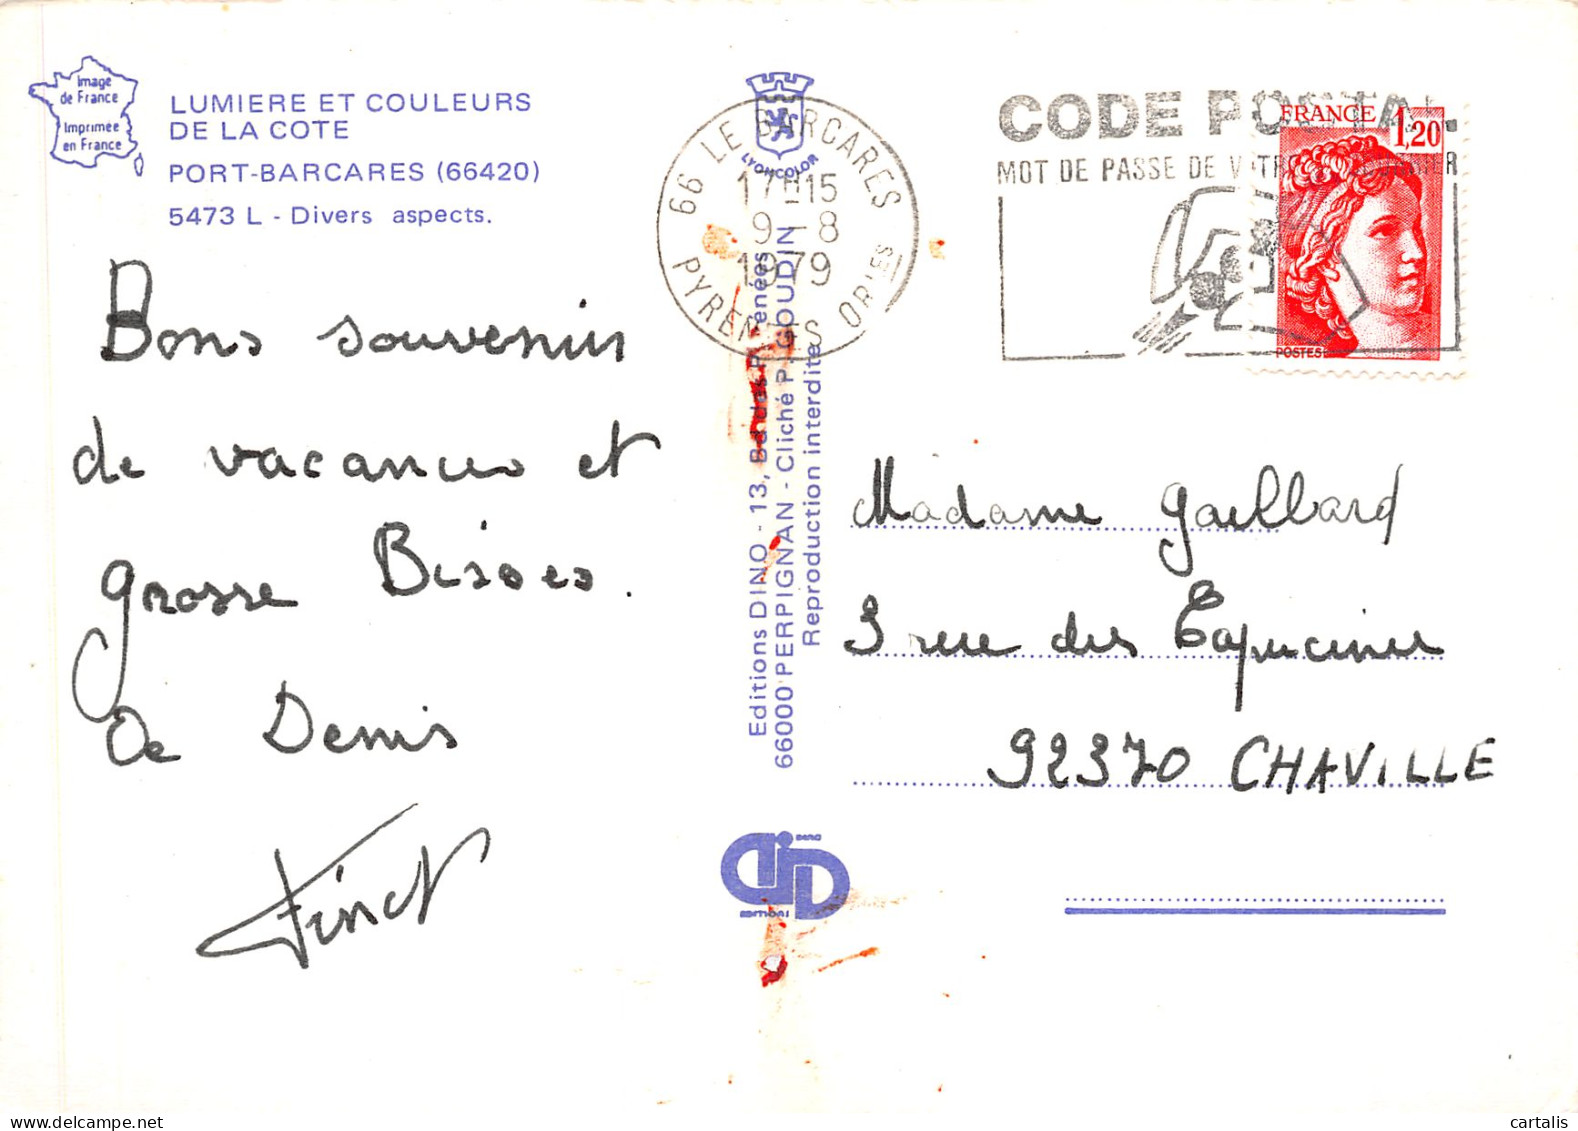 Image
de France
Imprimée
en France
LUMIERE ET COULEURS
DE LA COTE
PORT-BARCARES (66420)
5473 L - Divers aspects.
Bons souvenirs
de vacances et
grosse Bises.
De Denis
LYONCOLOR
66 LE BARCARES
17H15
9-8
1979
PYRENEES OR'ES
CODE POSTAL
MOT DE PASSE DE VOTRE COURRIER
FRANCE 1,20
POSTES
Editions DINO - 13, Bd des Pyrénées
66000 PERPIGNAN - Cliché P. GOUDIN
Reproduction interdite
Madame Gaillard
3 rue des Capucines
92370 CHAVILLE
DINO
EDITIONS
cartalis